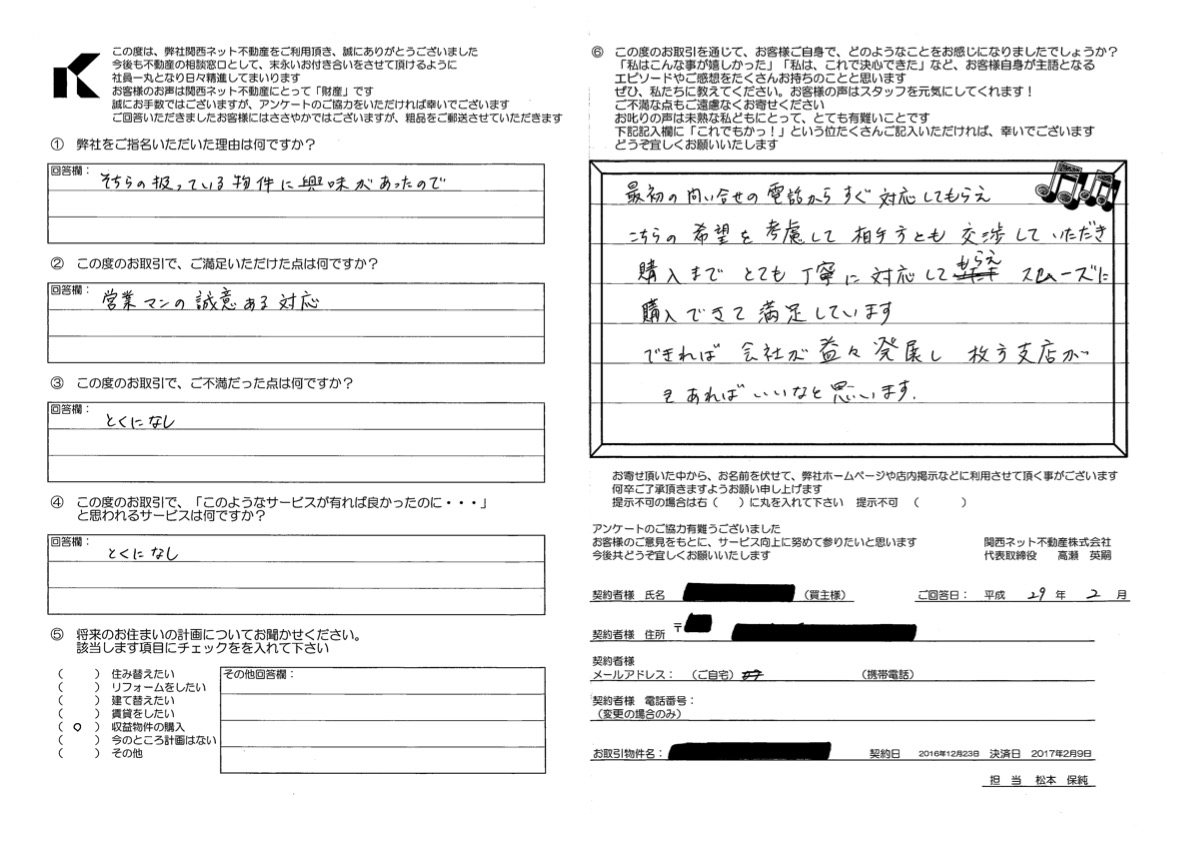 この度は、弊社関西ネット不動産をご利用頂き、誠にありがとうございました
今後も不動産の相談窓口として、末永いお付き合いをさせて頂けるように
社員一丸となり日々精進してまいります
お客様のお声は関西ネット不動産にとって「財産」です
誠にお手数ではございますが、アンケートのご協力をいただければ幸いでございます
ご回答いただきましたお客様にはささやかではございますが、粗品をご郵送させていただきます
① 弊社をご指名いただいた理由は何ですか？
回答欄：
そちらの扱っている物件に興味があったので
② この度のお取引で、ご満足いただけた点は何ですか？
回答欄：
営業マンの誠意ある対応
③ この度のお取引で、ご不満だった点は何ですか？
回答欄：
とくになし
④ この度のお取引で、「このようなサービスが有れば良かったのに・・・」
と思われるサービスは何ですか？
回答欄：
とくになし
⑤ 将来のお住まいの計画についてお聞かせください。
該当します項目にチェックをを入れて下さい
（　　） 住み替えたい
（　　） リフォームをしたい
（　　） 建て替えたい
（　　） 賃貸をしたい
（ ○ ） 収益物件の購入
（　　） 今のところ計画はない
（　　） その他
その他回答欄：
⑥ この度のお取引を通じて、お客様ご自身で、どのようなことをお感じになりましたでしょうか？
「私はこんな事が嬉しかった」「私は、これで決心できた」など、お客様自身が主語となる
エピソードやご感想をたくさんお持ちのことと思います
ぜひ、私たちに教えてください。お客様の声はスタッフを元気にしてくれます！
ご不満な点もご遠慮なくお寄せください
お叱りの声は未熟な私どもにとって、とても有難いことです
下記記入欄に「これでもかっ！」という位たくさんご記入いただければ、幸いでございます
どうぞ宜しくお願いいたします
最初の問い合せの電話からすぐ対応してもらえ
こちらの希望を考慮して相手方とも交渉していただき
購入までとても丁寧に対応してもらえ スムーズに
購入できて満足しています
できれば会社が益々発展し枚方支店が
あればいいなと思います.
お寄せ頂いた中から、お名前を伏せて、弊社ホームページや店内掲示などに利用させて頂く事がございます
何卒ご了承頂きますようお願い申し上げます
提示不可の場合は右（　　）に丸を入れて下さい　提示不可　（　　　）
アンケートのご協力有難うございました
お客様のご意見をもとに、サービス向上に努めて参りたいと思います
今後共どうぞ宜しくお願いいたします
関西ネット不動産株式会社
代表取締役　高瀬　英嗣
契約者様 氏名 （買主様） ご回答日： 平成 29 年 2 月
契約者様 住所 〒
契約者様
メールアドレス： （ご自宅） （携帯電話）
契約者様 電話番号：
（変更の場合のみ）
お取引物件名： 契約日 2016年12月23日 決済日 2017年2月9日
担 当 松本 保純